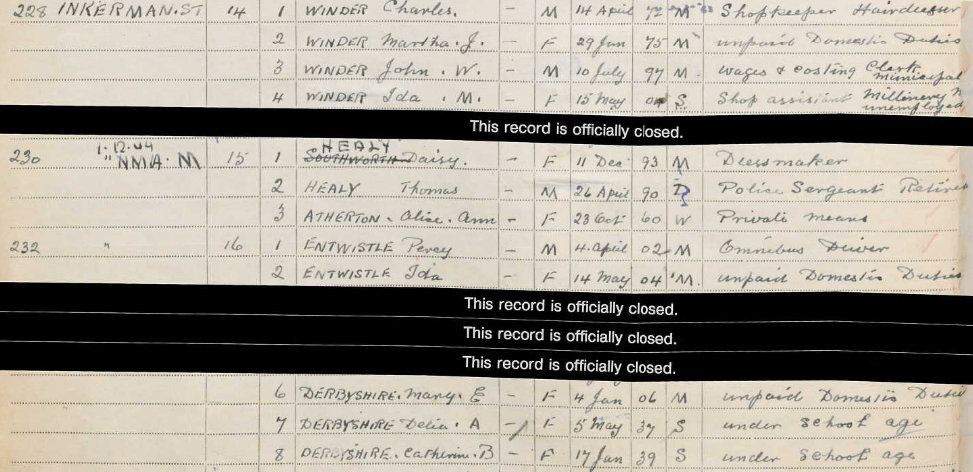 228 INKERMAN.ST 14 1 WINDER Charles. – M 14 April 72 M Shopkeeper Hairdresser
2 WINDER Martha.J. – F 29 Jan 75 M unpaid Domestic Duties
3 WINDER John.W. – M 10 July 97 M. Wages & Costing Clerk Municipal
4 WINDER Ida.M. – F 15 May 04 S. Shop assistant Millinery unemployed
This record is officially closed.
1.12.44 HEALY
230 " NMA. M 15 1 SOUTHWORTH Daisy. – F 11 Dec 93 M Dressmaker
2 HEALY Thomas – M 26 April 90 Police Sergeant Retired
3 ATHERTON. Alice. Ann – F 23 Oct 60 W Private means
232 " 16 1 ENTWISTLE Percy – M 4. April 02 M Omnibus Driver
2 ENTWISTLE Ida – F 14 May 04 M. unpaid Domestic Duties
This record is officially closed.
This record is officially closed.
This record is officially closed.
6 DERBYSHIRE. Mary. E – F 4 Jan 06 M unpaid Domestic Duties
7 DERBYSHIRE Delia. A – F 5 May 37 S under school age
8 DERBYSHIRE. Catherine. B – F 17 Jan 39 S under school age